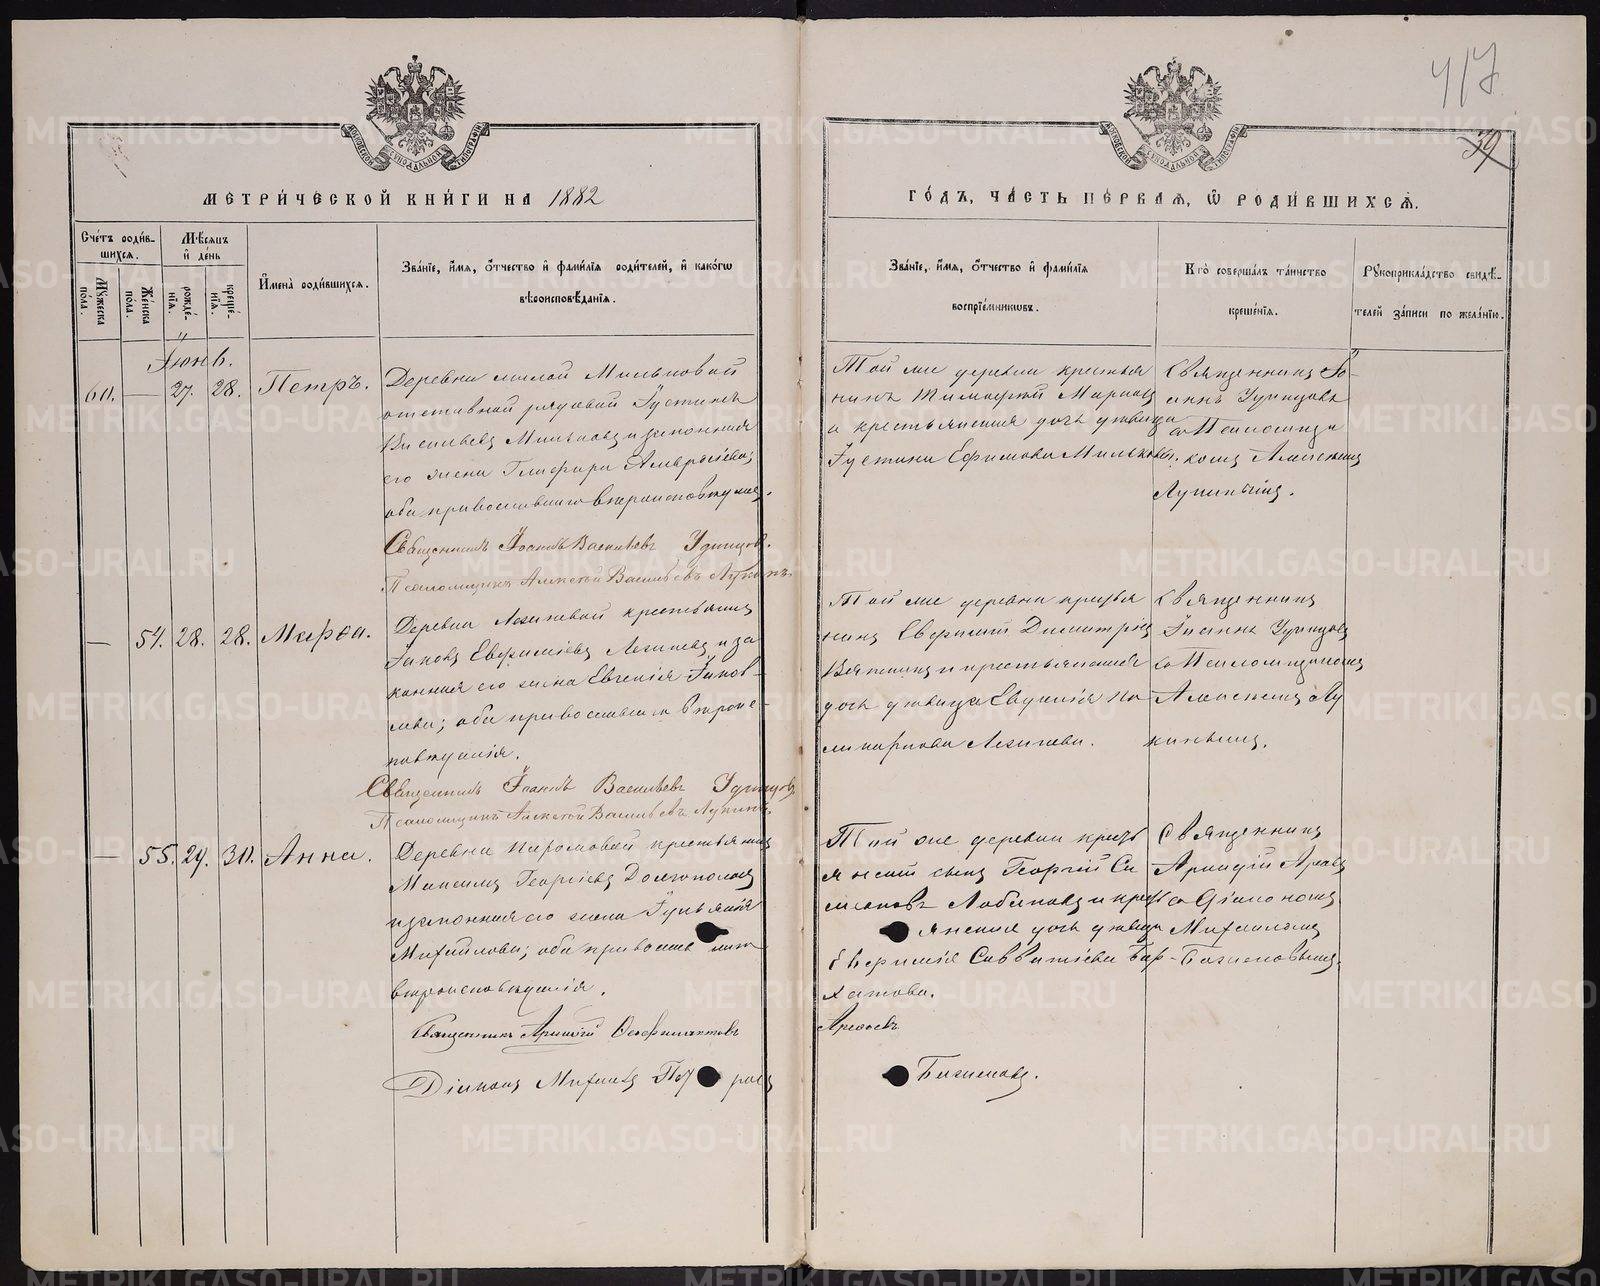 417
39
МЕТРИ́ЧЕСКОЙ КНИ́ГИ НА 1882
ГО́ДЪ, ЧА́СТЬ ПЕ́РВАѦ, Ѿ РОДИ́ВШИХСѦ.
Сче́тъ роди́вшихсѧ.
Мѣ́сѧцъ и҆ де́нь
Мꙋ́жеска по́ла.
Же́нска по́ла.
рожде́нїѧ.
креще́нїѧ.
И҆мена̀ роди́вшихсѧ.
Зва́нїе, и҆́мѧ, ѻ҆́тчество и҆ фами́лїѧ роди́телей, и҆ како́гѡ
вѣроисповѣ́данїѧ.
Зва́нїе, и҆́мѧ, ѻ҆́тчество и҆ фами́лїѧ
воспрїе́мникѡвъ.
Кто̀ соверша́лъ та́инство
креще́нїѧ.
Рꙋкоприкла́дство свидѣ́-
телей за́писи по жела́нїю.
Іюнь.
60. — 27. 28. Петръ.
Деревни малой Мильковой
отставной рядовой Іустинъ
Васильевъ Мильковъ и законная
его жена Глафира
оба православнаго вѣроисповѣданія.
Священникъ Іоаннъ Васильевъ Удинцовъ.
Псаломщикъ Алексѣй Васильевъ Лукинъ
Той же деревни крестья
нинъ Тимофей Марковъ
и крестьянская дочь дѣвица
Іустина Ефимова Милькова.
Священникъ Іо-
аннъ Удинцовъ
съ Псаломщи
комъ Алексѣемъ
Лукинымъ.
— 54. 28. 28. Марѳа.
Деревни крестьянинъ
Іаковъ Евфиміевъ и за
конная его жена Евгенія Іаков-
лева; оба православнаго вѣроис-
повѣданія.
Священникъ Іоаннъ Васильевъ Удинцовъ
Псаломщикъ Алексѣй Васильевъ Лукинъ
Той же деревни крестья
нинъ Евфимій Димитріевъ
и крестьянская
дочь дѣвица
Священникъ
Іоаннъ Удинцовъ
съ Псаломщикомъ
Алексѣемъ Лу
кинымъ.
— 55. 29. 30. Анна.
Деревни крестьянинъ
Максимъ Георгіевъ Долгополовъ
и законная его жена Іуліанія
Михайлова; оба православнаго
вѣроисповѣданія.
Священникъ Аркадій Феофилактовъ
Діаконъ Михаилъ
Той же деревни крестья
янскій сынъ Георгій Си
меоновъ Лобановъ и крестъ
янская дочь дѣвица
Евфимія Савватіева Бар-
хатова.
Арефьевъ
Баженовъ.
Священникъ
Аркадій Арефьевъ
съ Діакономъ
Михаиломъ
Баженовымъ.
METRIKI.GASO-URAL.RU